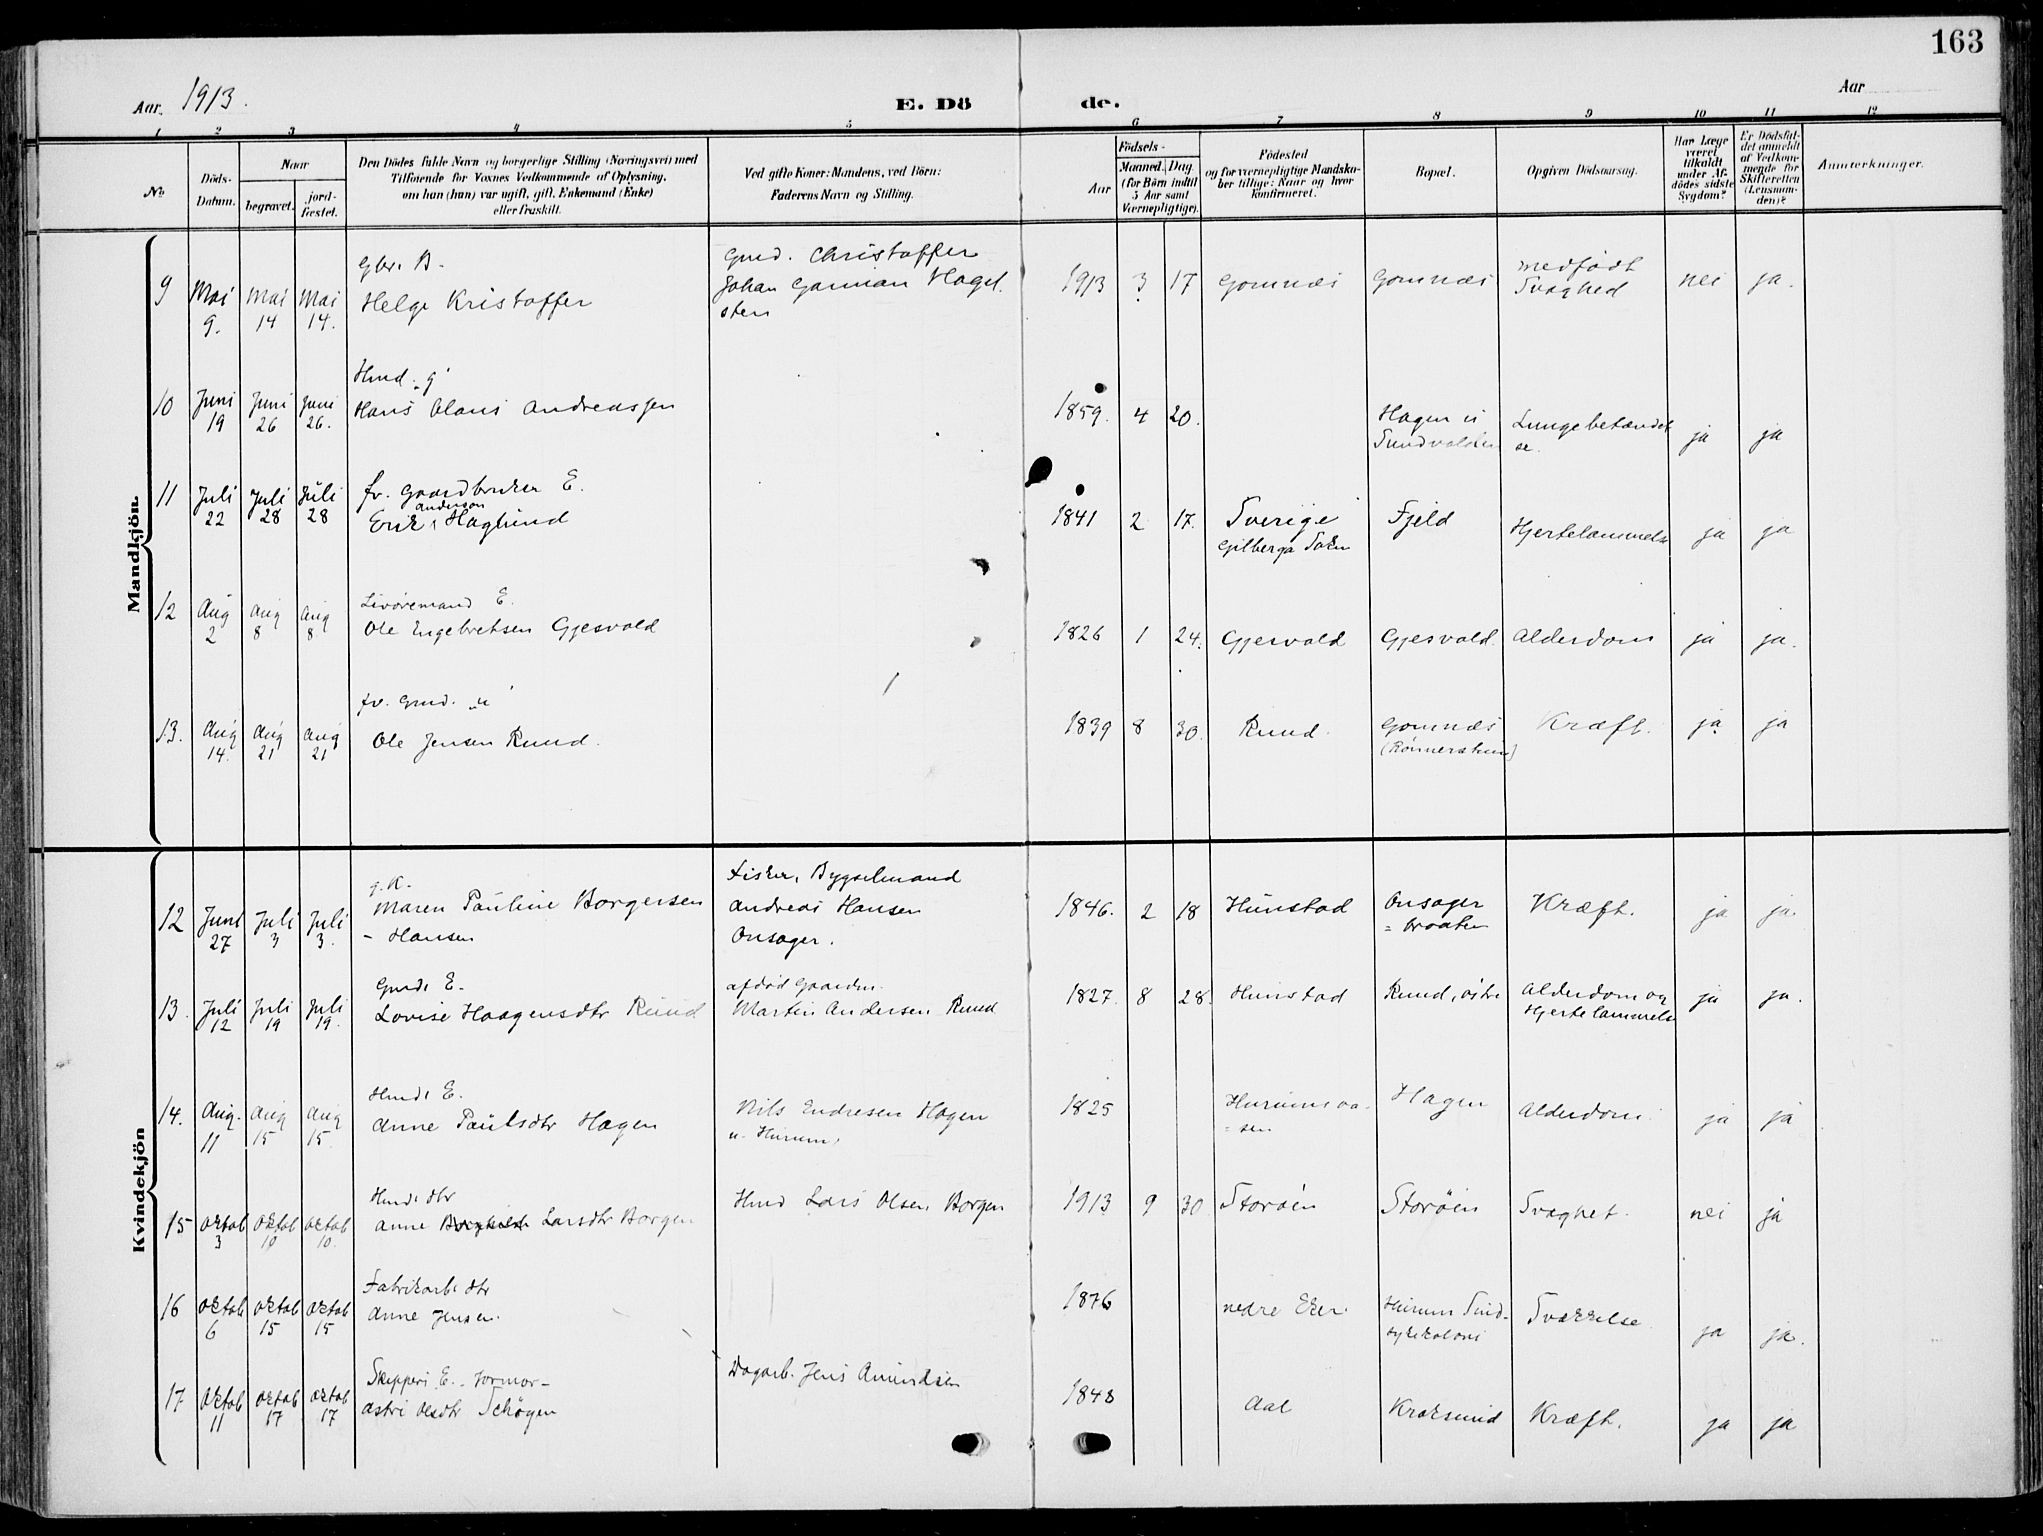 163
Aar. 1913.
E. Dö de.
Aar
1 2 3 4 5 6 7 8 9 10 11 12
No
Döds-Datum.
Naar
begravet.
jordfæstet.
Den Dödes fulde Navn og borgerlige Stilling (Næringsvei) med Tilföiende for Voxnes Vedkommende af Oplysning, om han (hun) var ugift, gift, Enkemand (Enke) eller fraskilt.
Ved gifte Koner: Mandens, ved Börn: Faderens Navn og Stilling.
Födsels-
Aar
Maaned. Dag.
(for Börn indtil 5 Aar samt Værnepligtige).
Födested
og for værnepligtige Mandskaber tillige: Naar og hvor konfirmeret.
Bopæl.
Opgiven Dödsaarsag.
Har Læge været tilkaldt under Afdödes sidste Sygdom?
Er Dödsfaldet anmeldt af Vedkommende for Skifteretten (Lensmanden)?
Anmærkninger.
Mandkjön.
9 Mai 9. Mai 14 Mai 14. Gbr. B. Helge Kristoffer Gmd. Christoffer Johan Garman Hagelsten 1913 3 17 Gomnæs Gomnæs medfødt Svaghed nei ja.
10 Juni 19 Juni 26 Juni 26. Hmd. g Hans Olaus Andreassen 1859. 4 20. Hagen u Sundvolden Lungebetændelse. ja ja
11 Juli 22 Juli 28 Juli 28 fv. Gaardbruker E. Erik Anderson Haglund 1841 2 17. Sverige Gilberga Soken Fjeld Hjertelammelse ja ja
12 Aug 2 Aug 8 Aug 8 Livøremand E. Ole Engebretsen Gjesvold 1826 1 24. Gjesvold Gjesvold. Alderdom ja ja.
13. Aug 14. Aug 21 Aug 21 fv. Gmd. u Ole Jensen Rund. 1839 8 30. Rund. Gomnæs Kræft. ja. ja
Kvindekjön
12 Juni 27 Juli 3 Juli 3. g. K. Maren Pauline Borgersen - Hansen Fisker, Bygselmand Andreas Hansen Onsager. 1846. 2 18 Hunstad Onsager = braaten Kræft. ja ja
13. Juli 12 Juli 19 Juli 19. Gmds E. Lovise Haagensdtr Rund afdød Gaardm. Martin Andersen Rund 1827. 8 28. Hunstad Rund, østre Alderdom og Hjertelammelse ja ja.
14. Aug. 11 Aug 15 Aug 15. Hmds E. Anne Paulsdtr Hagen Nils Endresen Hagen u. Hurum, 1825 Hurumsaa = sen Hagen Alderdom. ja ja
15 Oktob 3 Oktob 10 Oktob 10. Hmds dtr Anne Larsdtr Borgen Hmd Lars Olsen Borgen 1913 9 30 Storøen Storøen Svaghet. nei ja
16 Oktob 6 Oktob 15 Oktob 15 Fabrikarb. dtr Anne Jensen. 1876 nedre Eker. Hurum Sindsykekoloni Svækkelse. ja ja.
17 Oktob 11 Oktob 17 Oktob 17 Skippers E. Astri Olsdtr Schøgen Dagarb. Jens Amundsen 1848 Aal Kroksund Kræft. ja ja